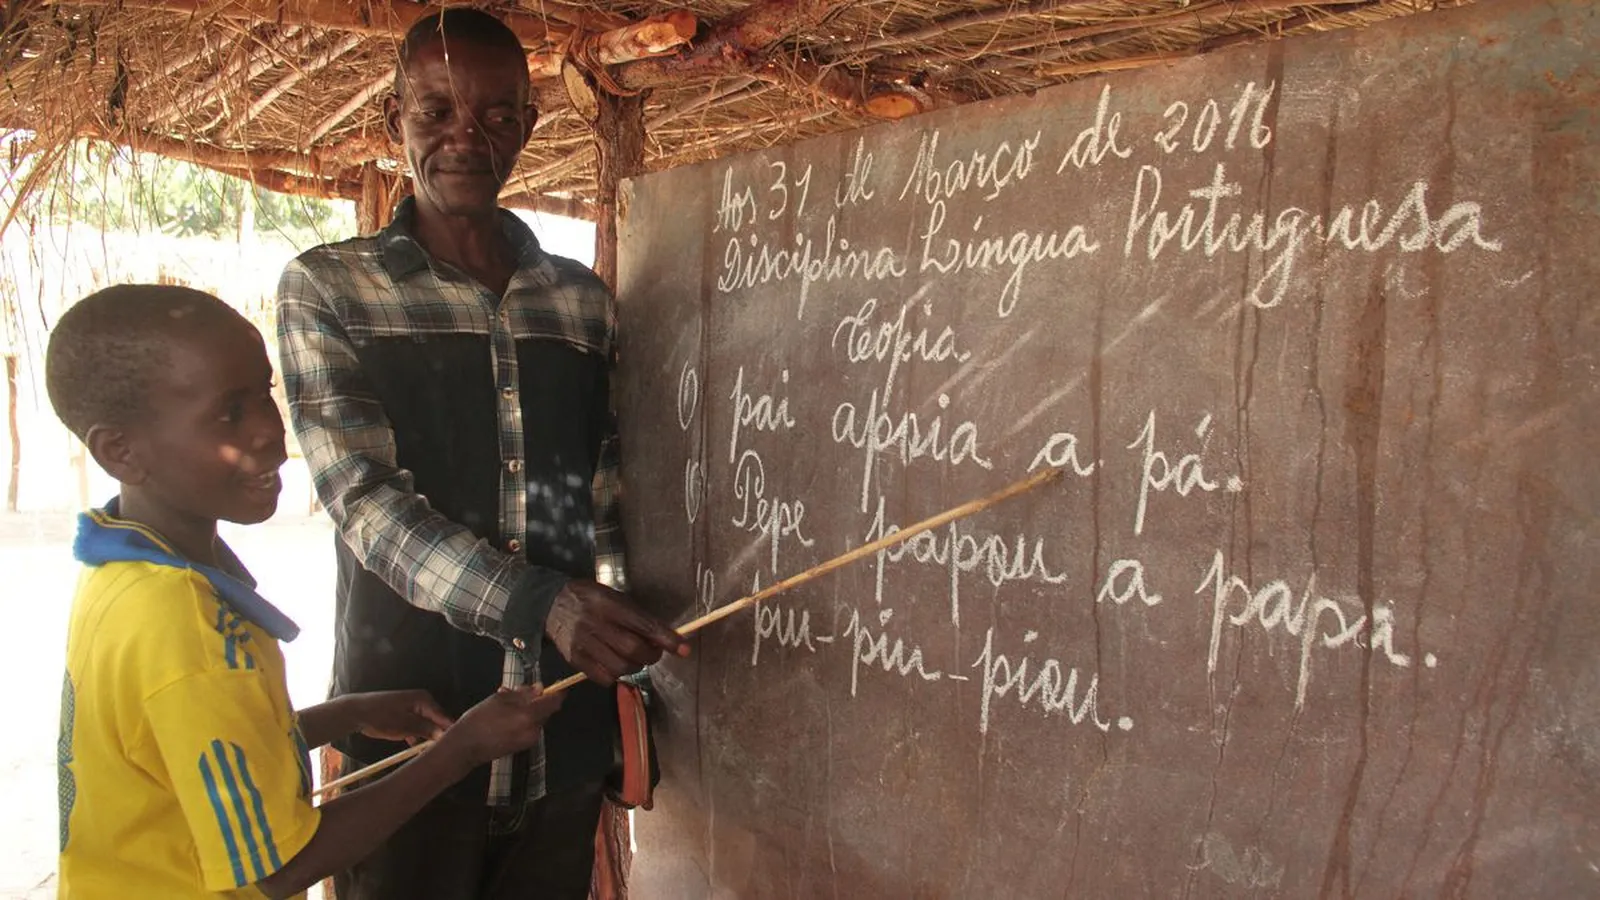 Aos 31 de Março de 2016
Disciplina Língua Portuguesa
Cópia
pai apoia a pá.
Pepe papou a papa.
piu-piu-piou.